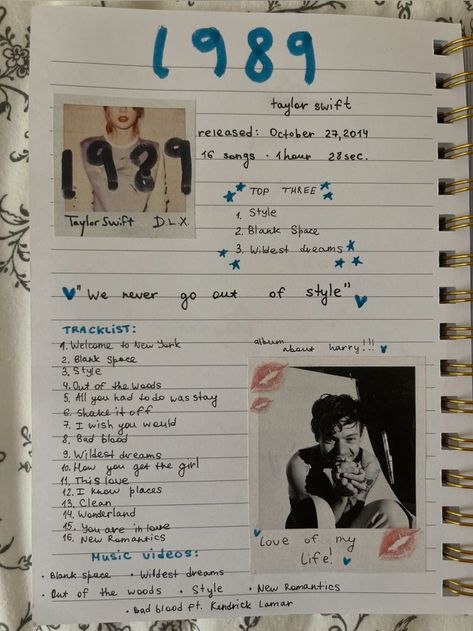 1989
taylor swift
released: October 27, 2014
16 songs · 1 hour 28 sec.
1989
Taylor Swift D.L.X.
TOP THREE
1. Style
2. Blank Space
3. Wildest dreams
"We never go out of style"
TRACKLIST:
1. Welcome to New York
2. Blank Space
3. Style
4. Out of the woods
5. All you had to do was stay
6. Shake it off
7. I wish you would
8. Bad blood
9. Wildest dreams
10. How you get the girl
11. This love
12. I know places
13. Clean
14. Wonderland
15. You are in love
16. New Romantics
album
about harry!!!
Love of my
Life!
Music videos:
· Blank space · Wildest dreams
· Out of the woods · Style · New Romantics
· Bad blood ft. Kendrick Lamar